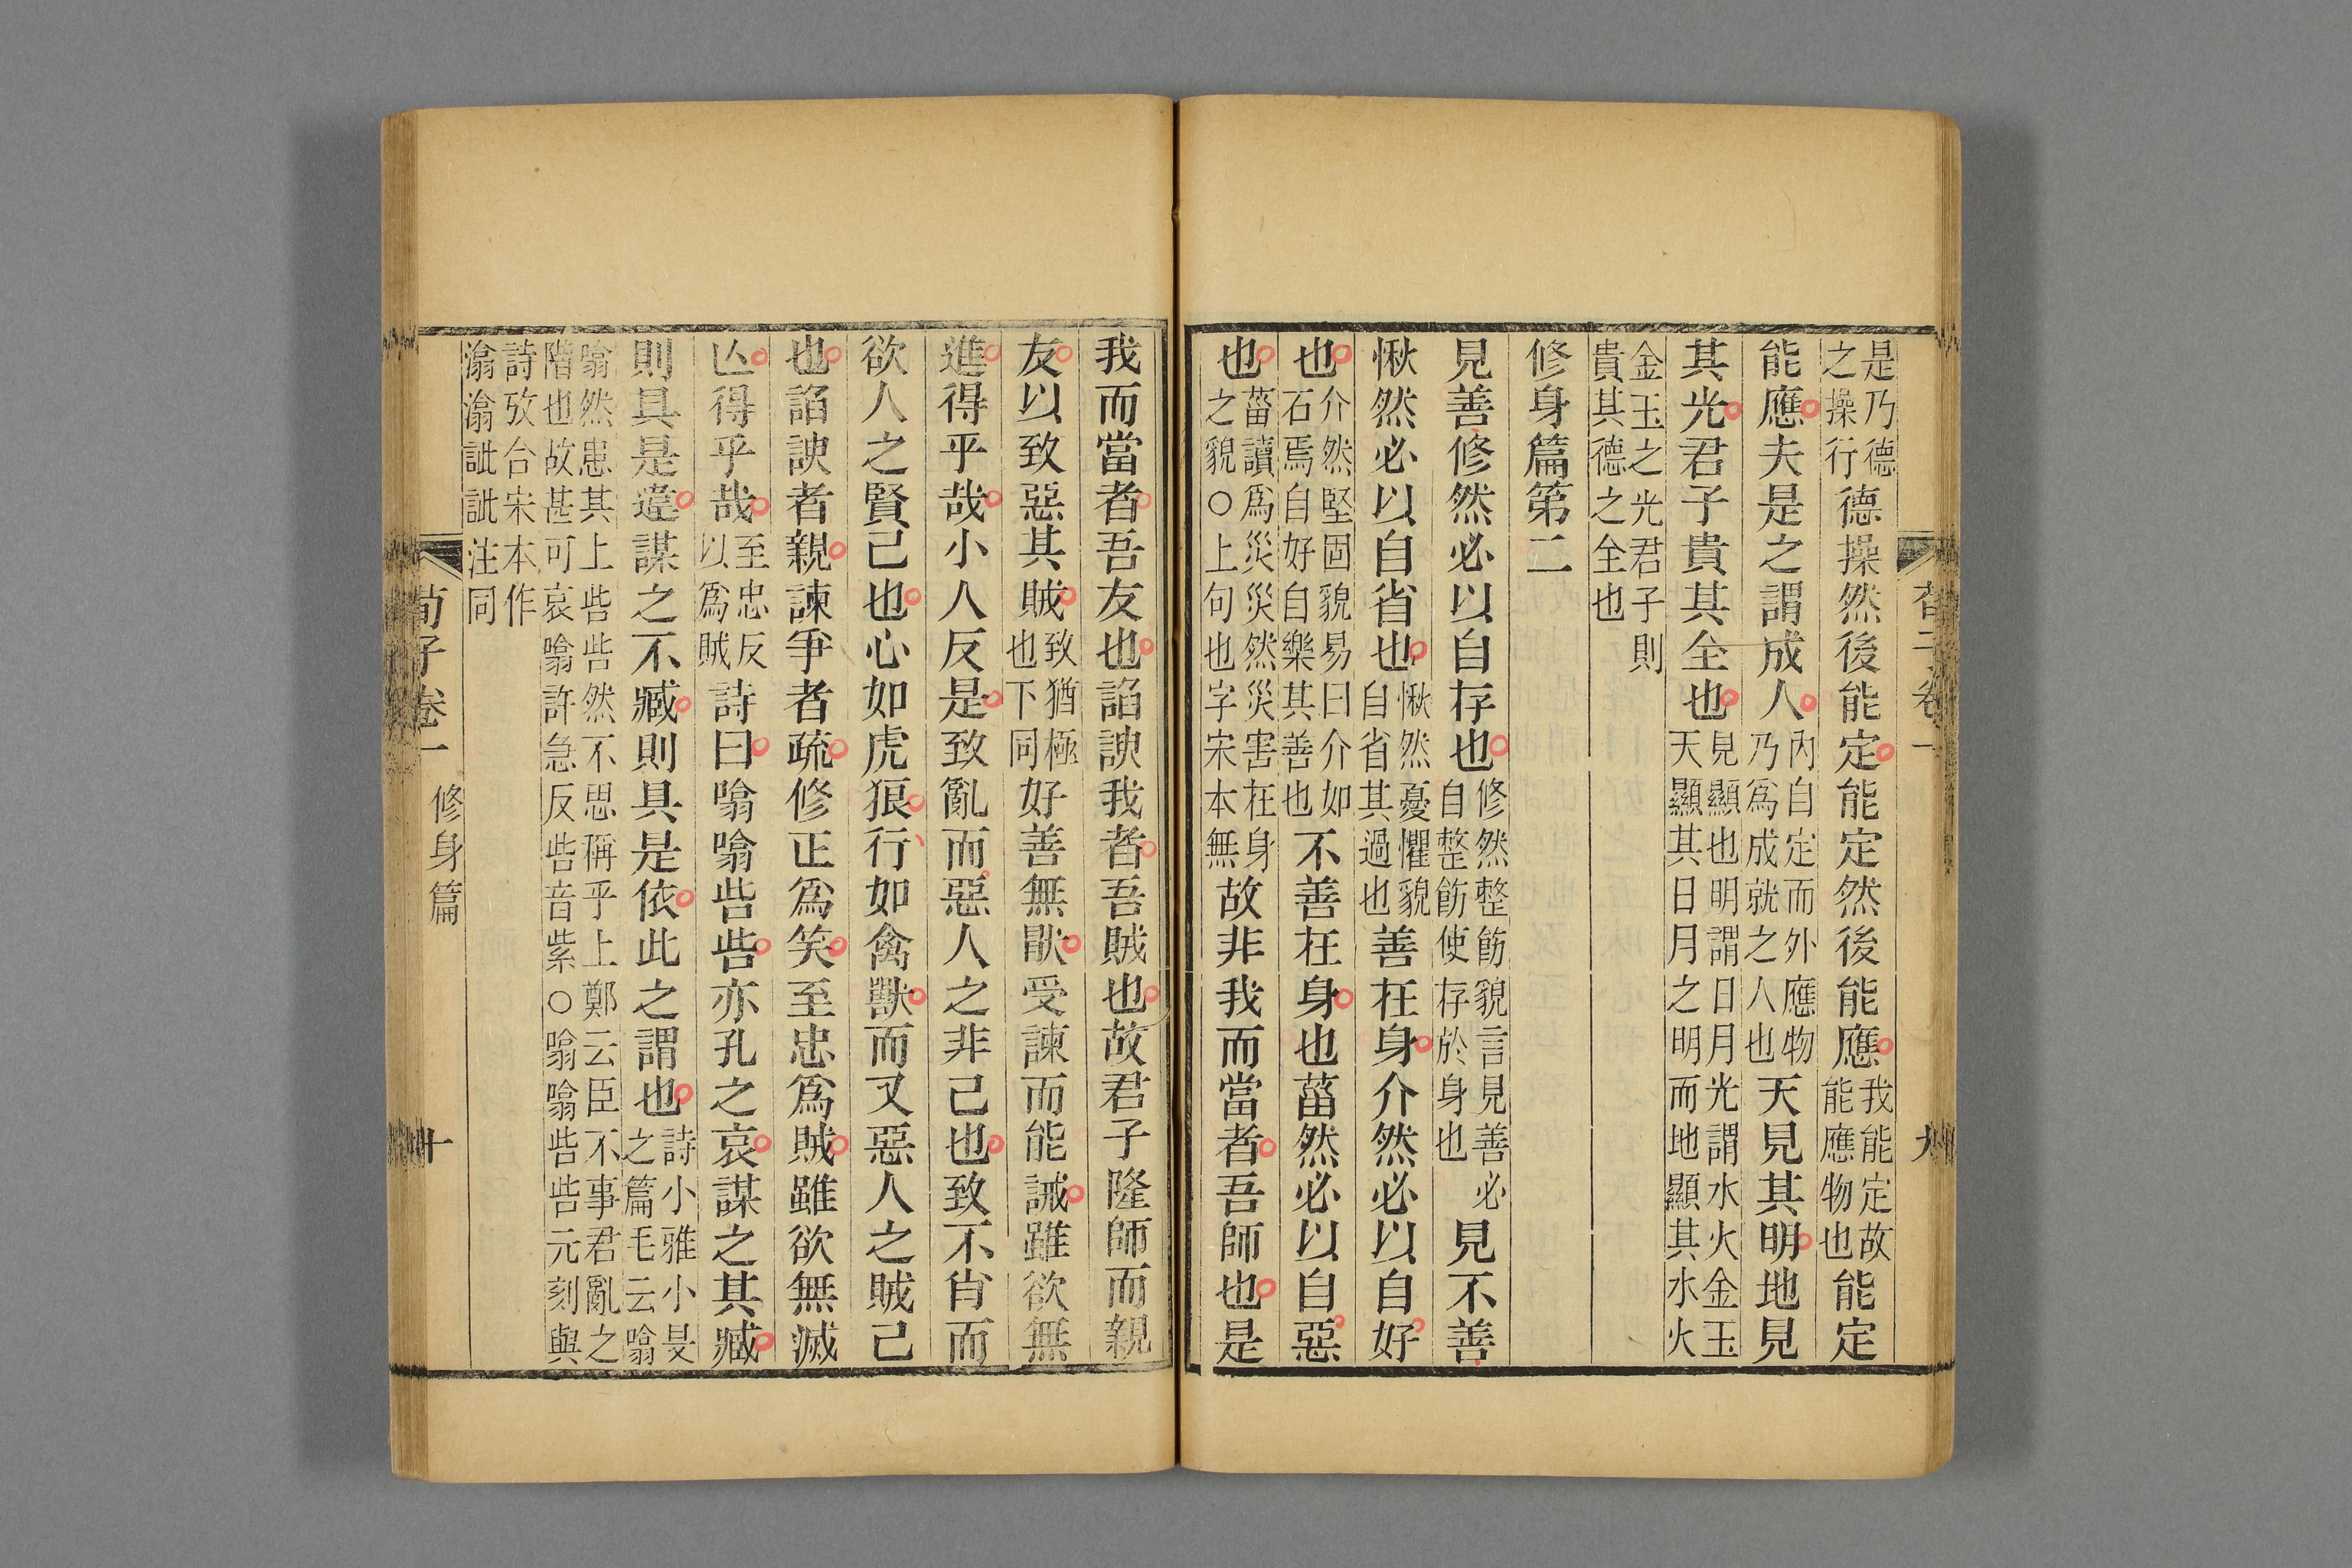 是乃德之操行德操然後能定能定然後能應我能定故能應物也能定
能應夫是之謂成人內自定而外應物乃爲成就之人也天見其明地見
其光君子貴其全也見顯也明謂日月光謂水火金玉天顯其日月之明而地顯其水火
金玉之光君子則貴其德之全也
修身篇第二
見善修然必以自存也修然整飭貌言見善必自整飭使存於身也見不善
愀然必以自省也愀然憂懼貌自省其過也善在身介然必以自好
也介然堅固貌易曰介如石焉自好自樂其善也不善在身也菑然必以自惡
也菑讀爲災災然災害在身之貌○上句也字宋本無故非我而當者吾師也是
我而當者吾友也諂諛我者吾賊也故君子隆師而親
友以致惡其賊致猶極也下同好善無猒受諫而能誡雖欲無
進得乎哉小人反是致亂而惡人之非己也致不肖而
欲人之賢己也心如虎狼行如禽獸而又惡人之賊己
也諂諛者親諫爭者疏修正爲笑至忠爲賊雖欲無滅
亾得乎哉至忠反以爲賊詩曰噏噏呰呰亦孔之哀謀之其臧
則具是違謀之不臧則具是依此之謂也詩小雅小旻之篇毛云噏
噏然患其上呰呰然不思稱乎上鄭云臣不事君亂之階也故甚可哀噏許急反呰音紫○噏噏呰呰元刻與
詩攷合宋本作潝潝訿訿注同
荀子卷一 修身篇 十